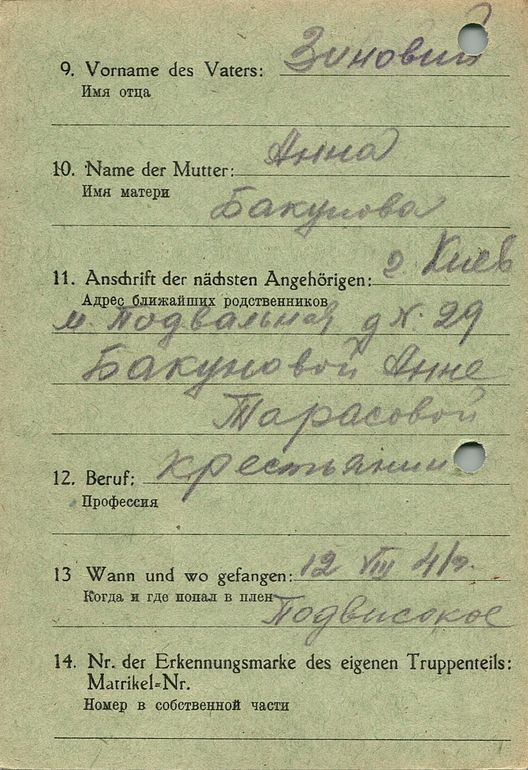 9. Vorname des Vaters: Зиновий
Имя отца
10. Name der Mutter: Анна
Имя матери
Бакунова
11. Anschrift der nächsten Angehörigen: г. Киев
Адрес ближайших родственников
м. Подвальная д Х. 29
Бакуновой Анне
Тарасовой
12. Beruf: крестьянин
Профессия
13 Wann und wo gefangen: 12 VIII 41г.
Когда и где попал в плен
Подвисокое
14. Nr. der Erkennungsmarke des eigenen Truppenteils:
Matrikel-Nr.
Номер в собственной части